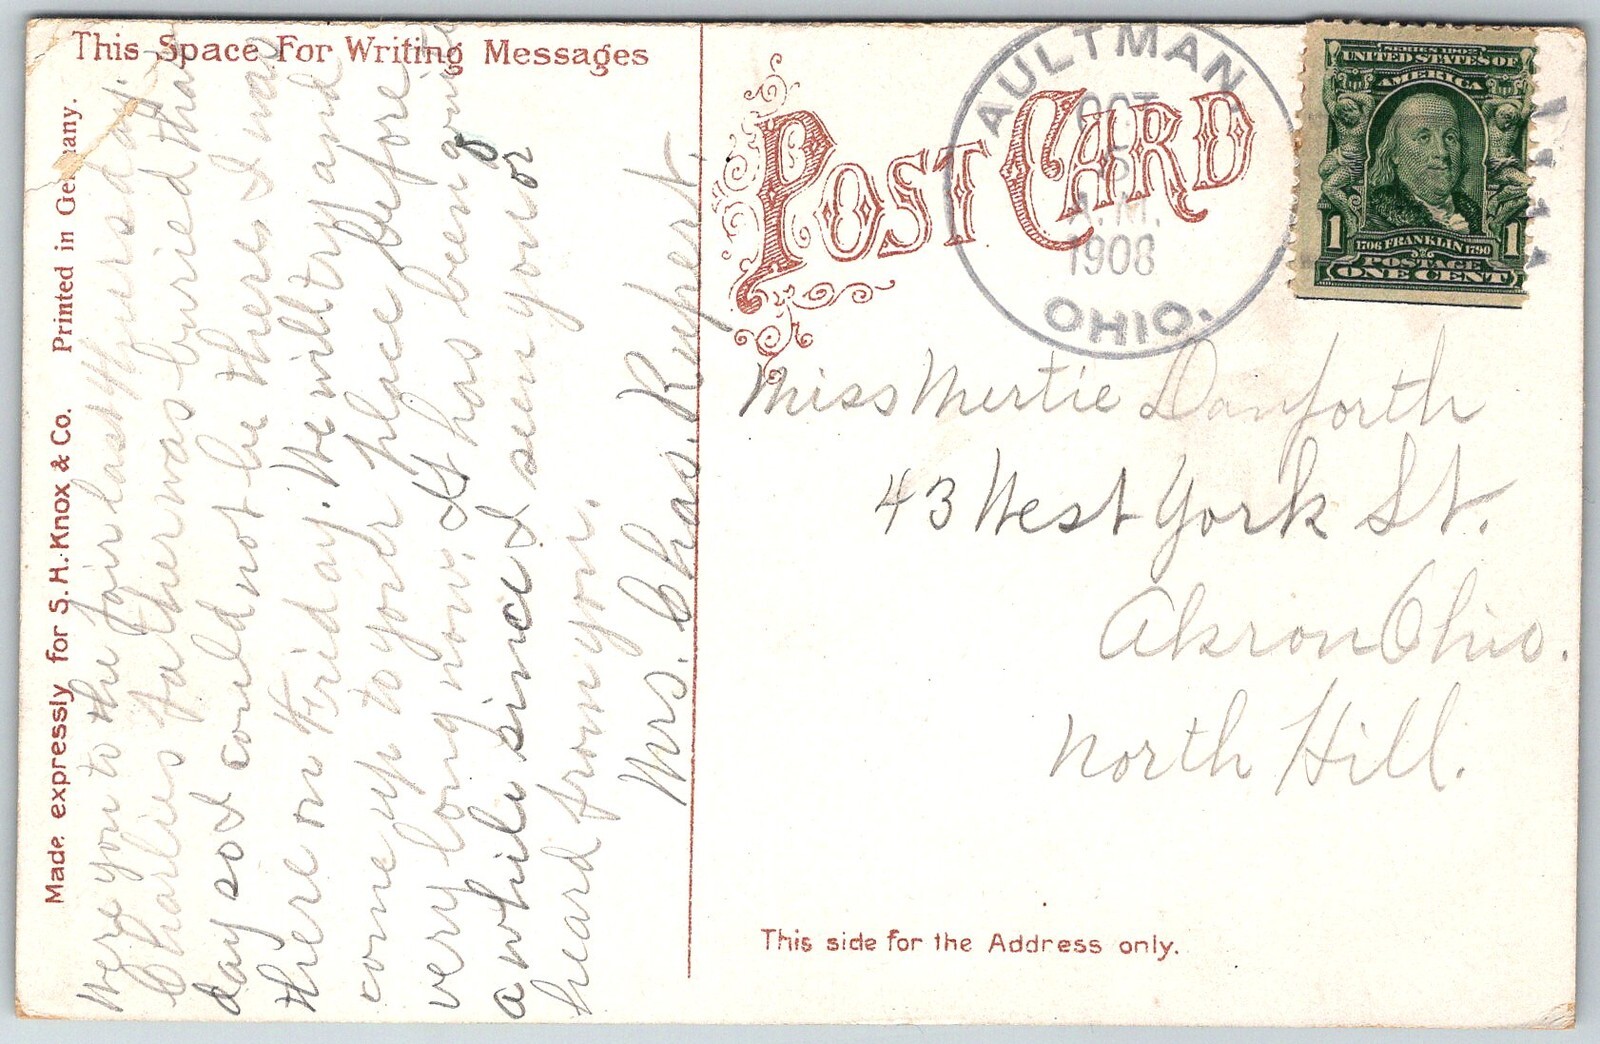 This Space For Writing Messages
Made expressly for S. H. Knox & Co. Printed in Germany.
Were you to the fair last Thurs day.
Charlies father was buried that
day so I could not be there. I was
there on Friday. We will try and
come up to your place before
very long now. It has been quite
a while since I seen you or
heard from you.
Mrs. Chas. Rupert.
POST CARD
AULTMAN
OCT
A.M.
1908
OHIO.
SERIES 1902
UNITED STATES OF
AMERICA
1 1706 FRANKLIN 1790 1
POSTAGE
ONE CENT
Miss Mertie Danforth
43 West York St.
Akron Ohio.
North Hill.
This side for the Address only.